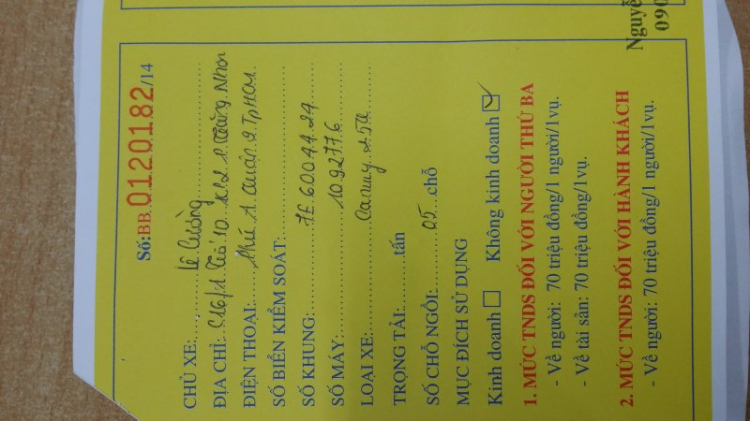 Số:BB.0120182/14
CHỦ XE: Lê Cường
ĐỊA CHỈ: Tổ 10
ĐIỆN THOẠI: Phú A. Quận 9. TpHCM
SỐ BIỂN KIỂM SOÁT:
SỐ KHUNG: 7E6004424
SỐ MÁY: 1092776
LOẠI XE: Camry
TRỌNG TẢI: tấn
SỐ CHỖ NGỒI: 05 chỗ
MỤC ĐÍCH SỬ DỤNG
Kinh doanh ☐ Không kinh doanh ☑
1. MỨC TNDS ĐỐI VỚI NGƯỜI THỨ BA
- Về người: 70 triệu đồng/1 người/1vụ.
- Về tài sản: 70 triệu đồng/1vụ.
2. MỨC TNDS ĐỐI VỚI HÀNH KHÁCH
- Về người: 70 triệu đồng/1 người/1vụ.
Nguyễ
090